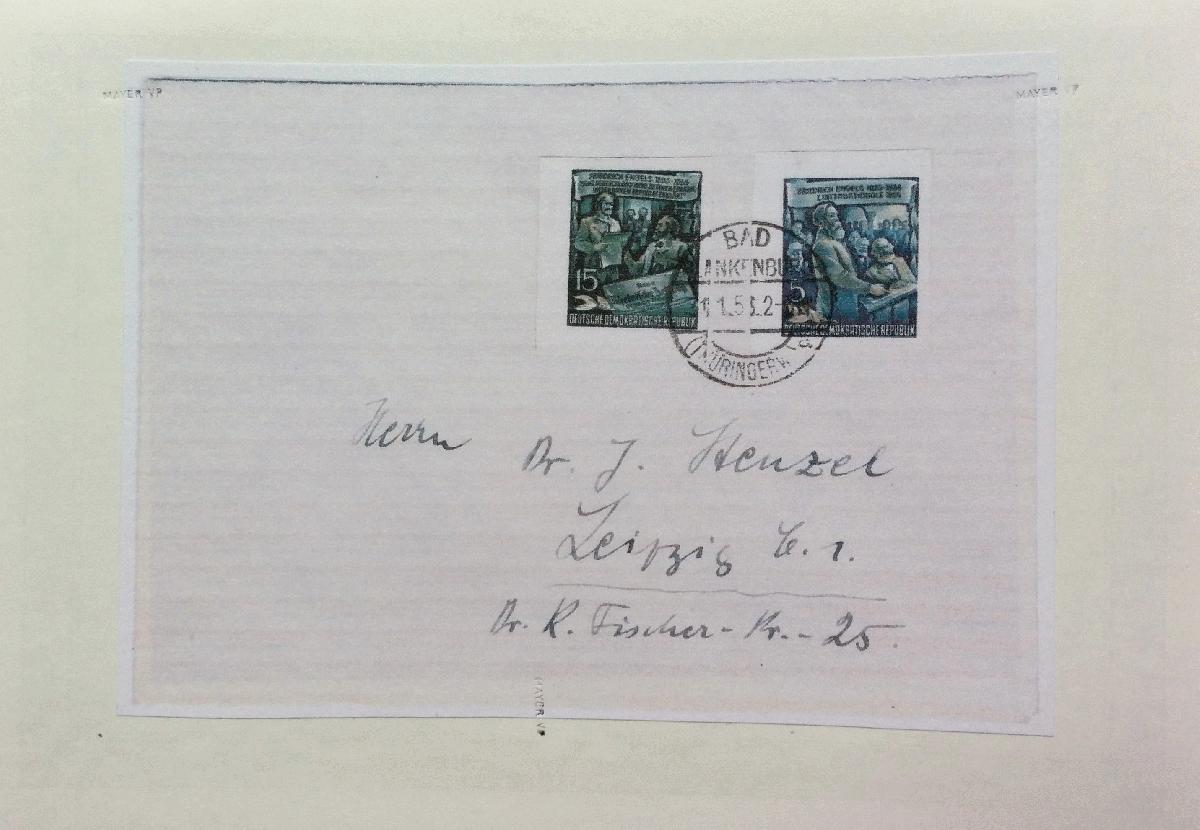 MAYER VP
MAYER VP
FRIEDRICH ENGELS 1895-1955
15
DEUTSCHE DEMOKRATISCHE REPUBLIK
FRIEDRICH ENGELS 1895-1955
5
DEUTSCHE DEMOKRATISCHE REPUBLIK
BAD
LANKENBU
(THÜRINGERW.)
a
Herrn Dr. J. Stenzel
Leipzig C. 1.
Dr. K. Fischer-Str.- 25.
MAYER VP